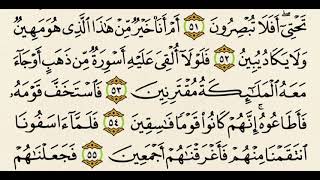 تَحْتِىٓ ۖ أَفَلَا تُبْصِرُونَ ٥١ أَمْ أَنَا۠ خَيْرٌ مِّنْ هَٰذَا ٱلَّذِى هُوَ مَهِينٌ
وَلَا يَكَادُ يُبِينُ ٥٢ فَلَوْلَآ أُلْقِىَ عَلَيْهِ أَسْوِرَةٌ مِّن ذَهَبٍ أَوْ جَآءَ
مَعَهُ ٱلْمَلَٰٓئِكَةُ مُقْتَرِنِينَ ٥٣ فَٱسْتَخَفَّ قَوْمَهُۥ
فَأَطَاعُوهُ ۚ إِنَّهُمْ كَانُوا۟ قَوْمًا فَٰسِقِينَ ٥٤ فَلَمَّآ ءَاسَفُونَا
ٱنتَقَمْنَا مِنْهُمْ فَأَغْرَقْنَٰهُمْ أَجْمَعِينَ ٥٥ فَجَعَلْنَٰهُمْ